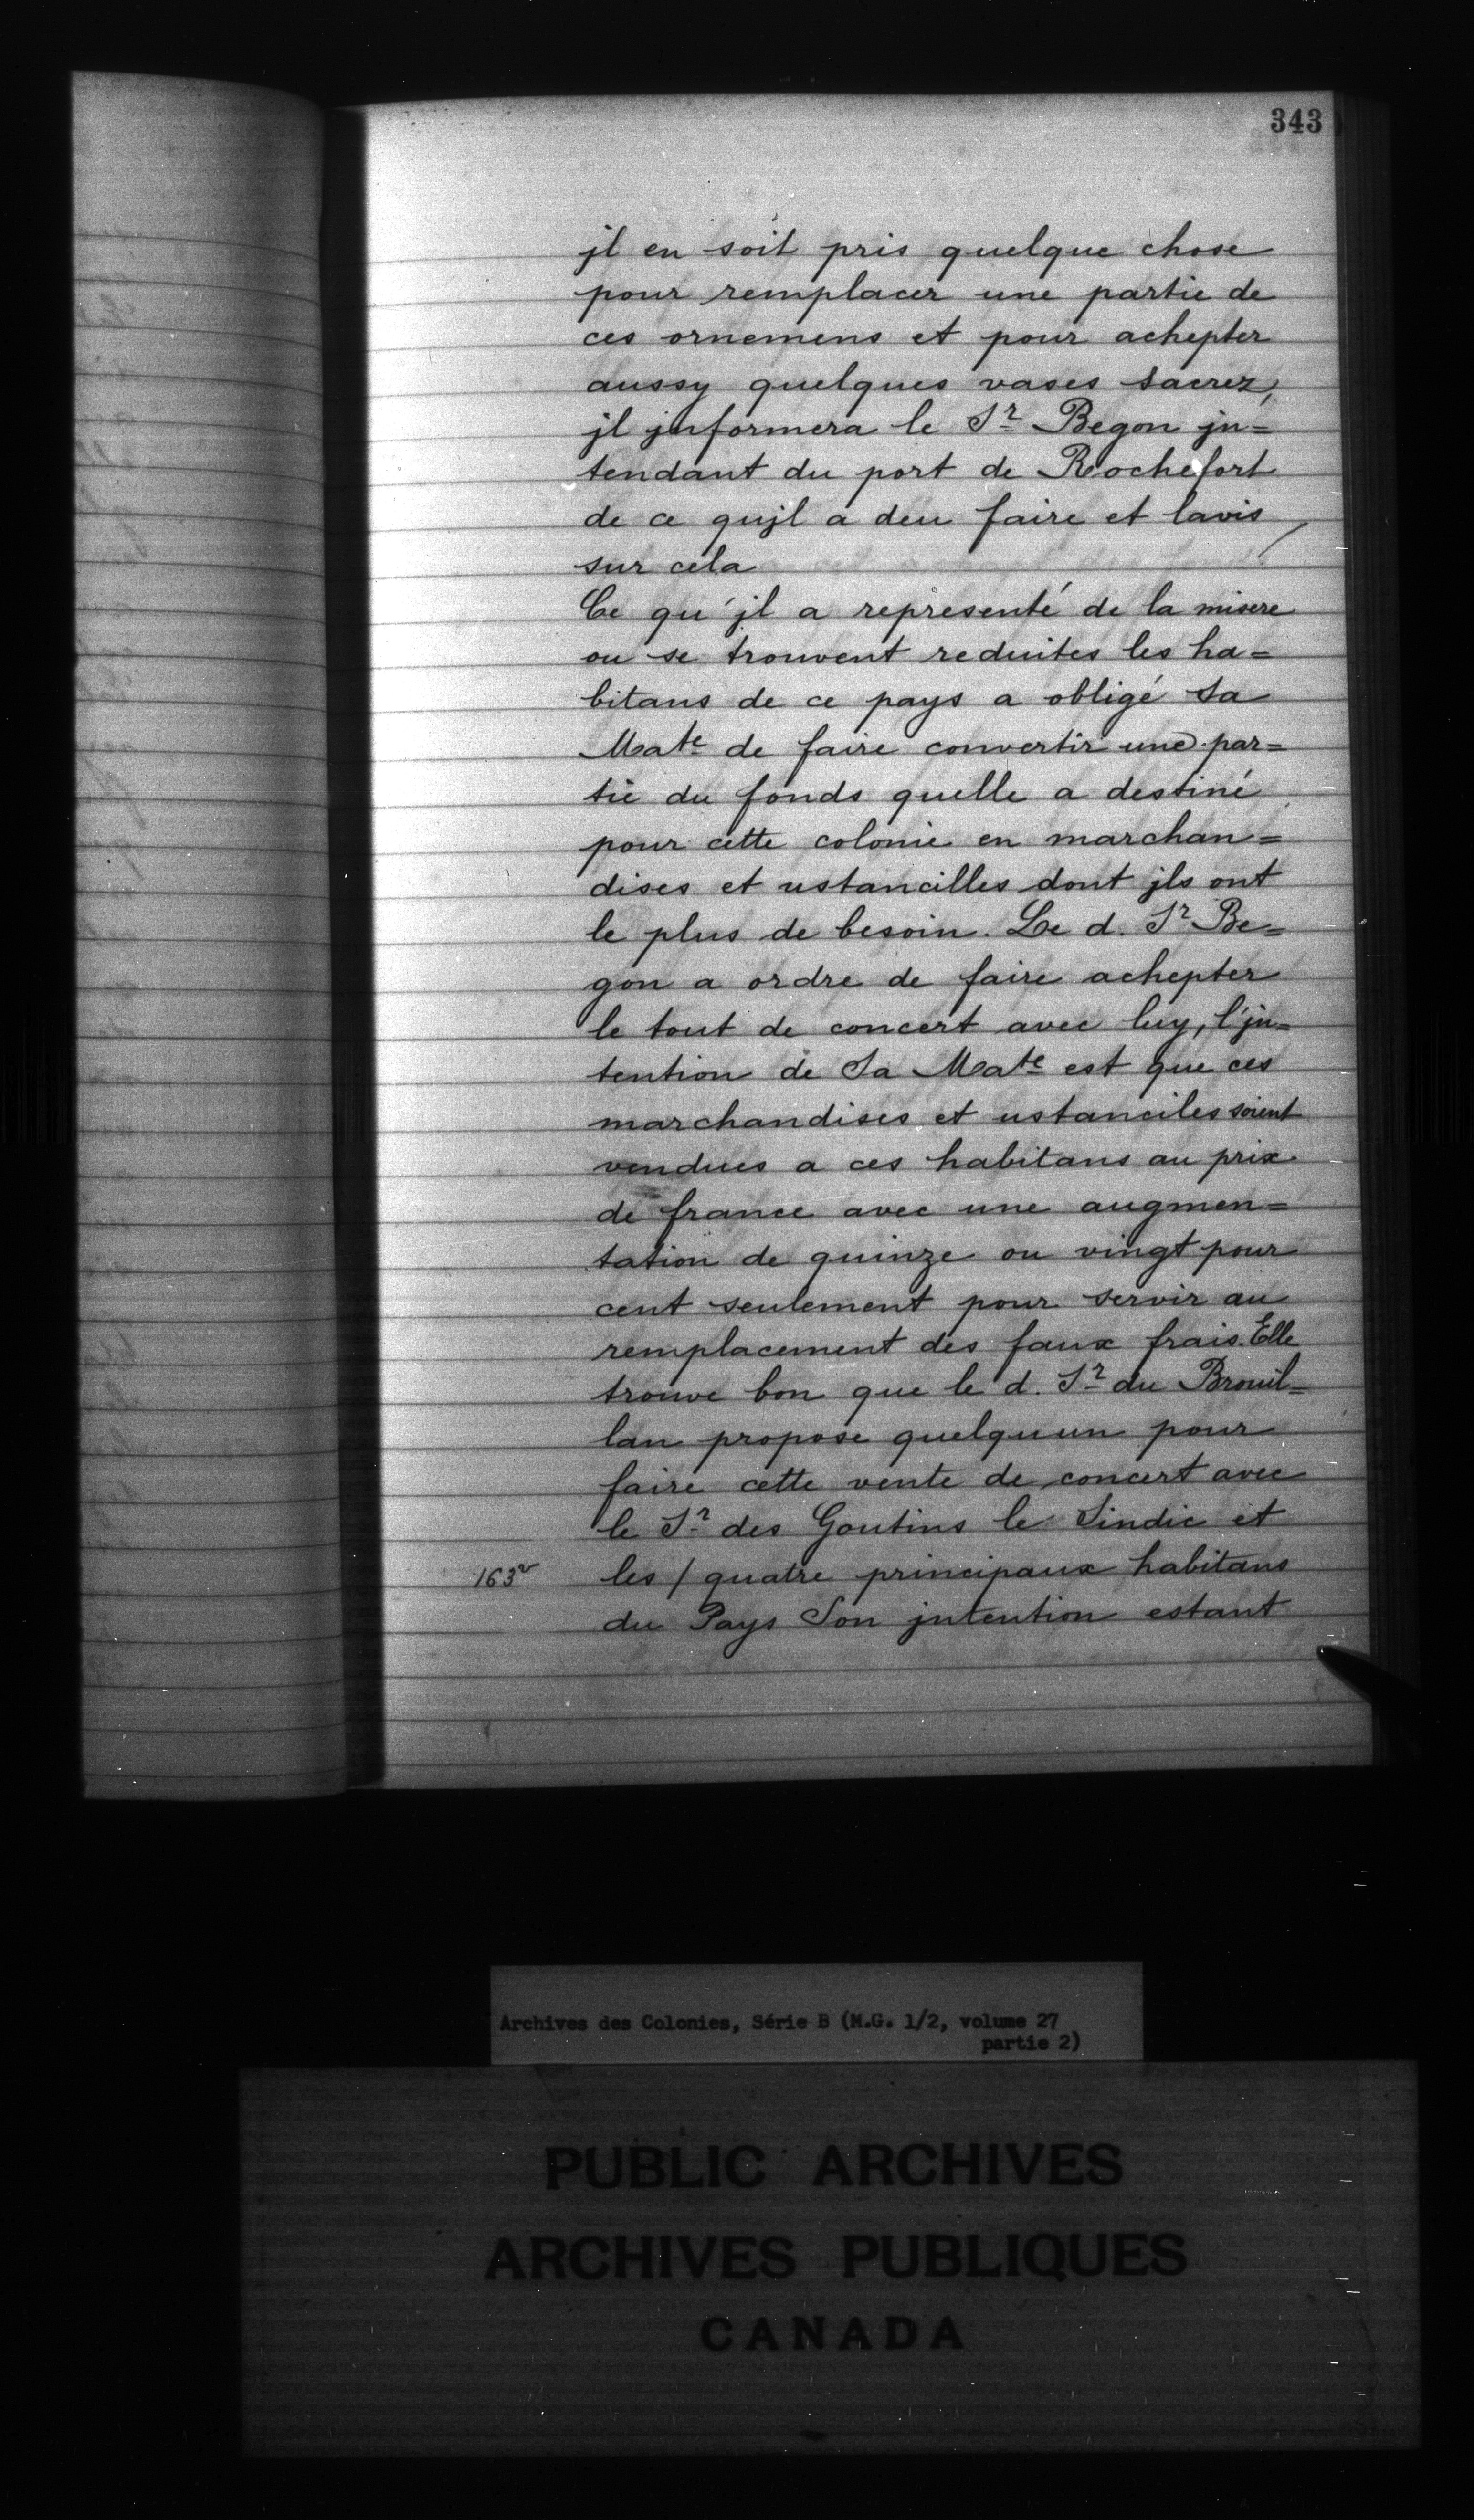 343
jl en soit pris quelque chose
pour remplacer une partie de
ces ornemens et pour achepter
aussy quelques vases sacrez,
jl jnformera le Sr Begon jn=
tendant du port de Rochefort
de ce qujl a deu faire et lavis
sur cela
Ce qu'jl a representé de la misere
ou se trouvent reduites les ha=
bitans de ce pays a obligé Sa
Mate de faire convertir une par=
tie du fonds quelle a destiné
pour cette colonie en marchan=
dises et ustancilles dont jls ont
le plus de besoin. Le d. Sr Be=
gon a ordre de faire achepter
le tout de concert avec luy, l'jn=
tention de Sa Mate est que ces
marchandises et ustanciles soient
vendues a ces habitans au prix
de france avec une augmen=
tation de quinze ou vingt pour
cent seulement pour servir au
remplacement des faux frais. Elle
trouve bon que le d. Sr du Brouil=
lan propose quelquun pour
faire cette vente de concert avec
le Sr des Goutins le Sindic et
163v les / quatre principaux habitans
du Pays Son jntention estant
Archives des Colonies, Série B (M.G. 1/2, volume 27
partie 2)
PUBLIC ARCHIVES
ARCHIVES PUBLIQUES
CANADA